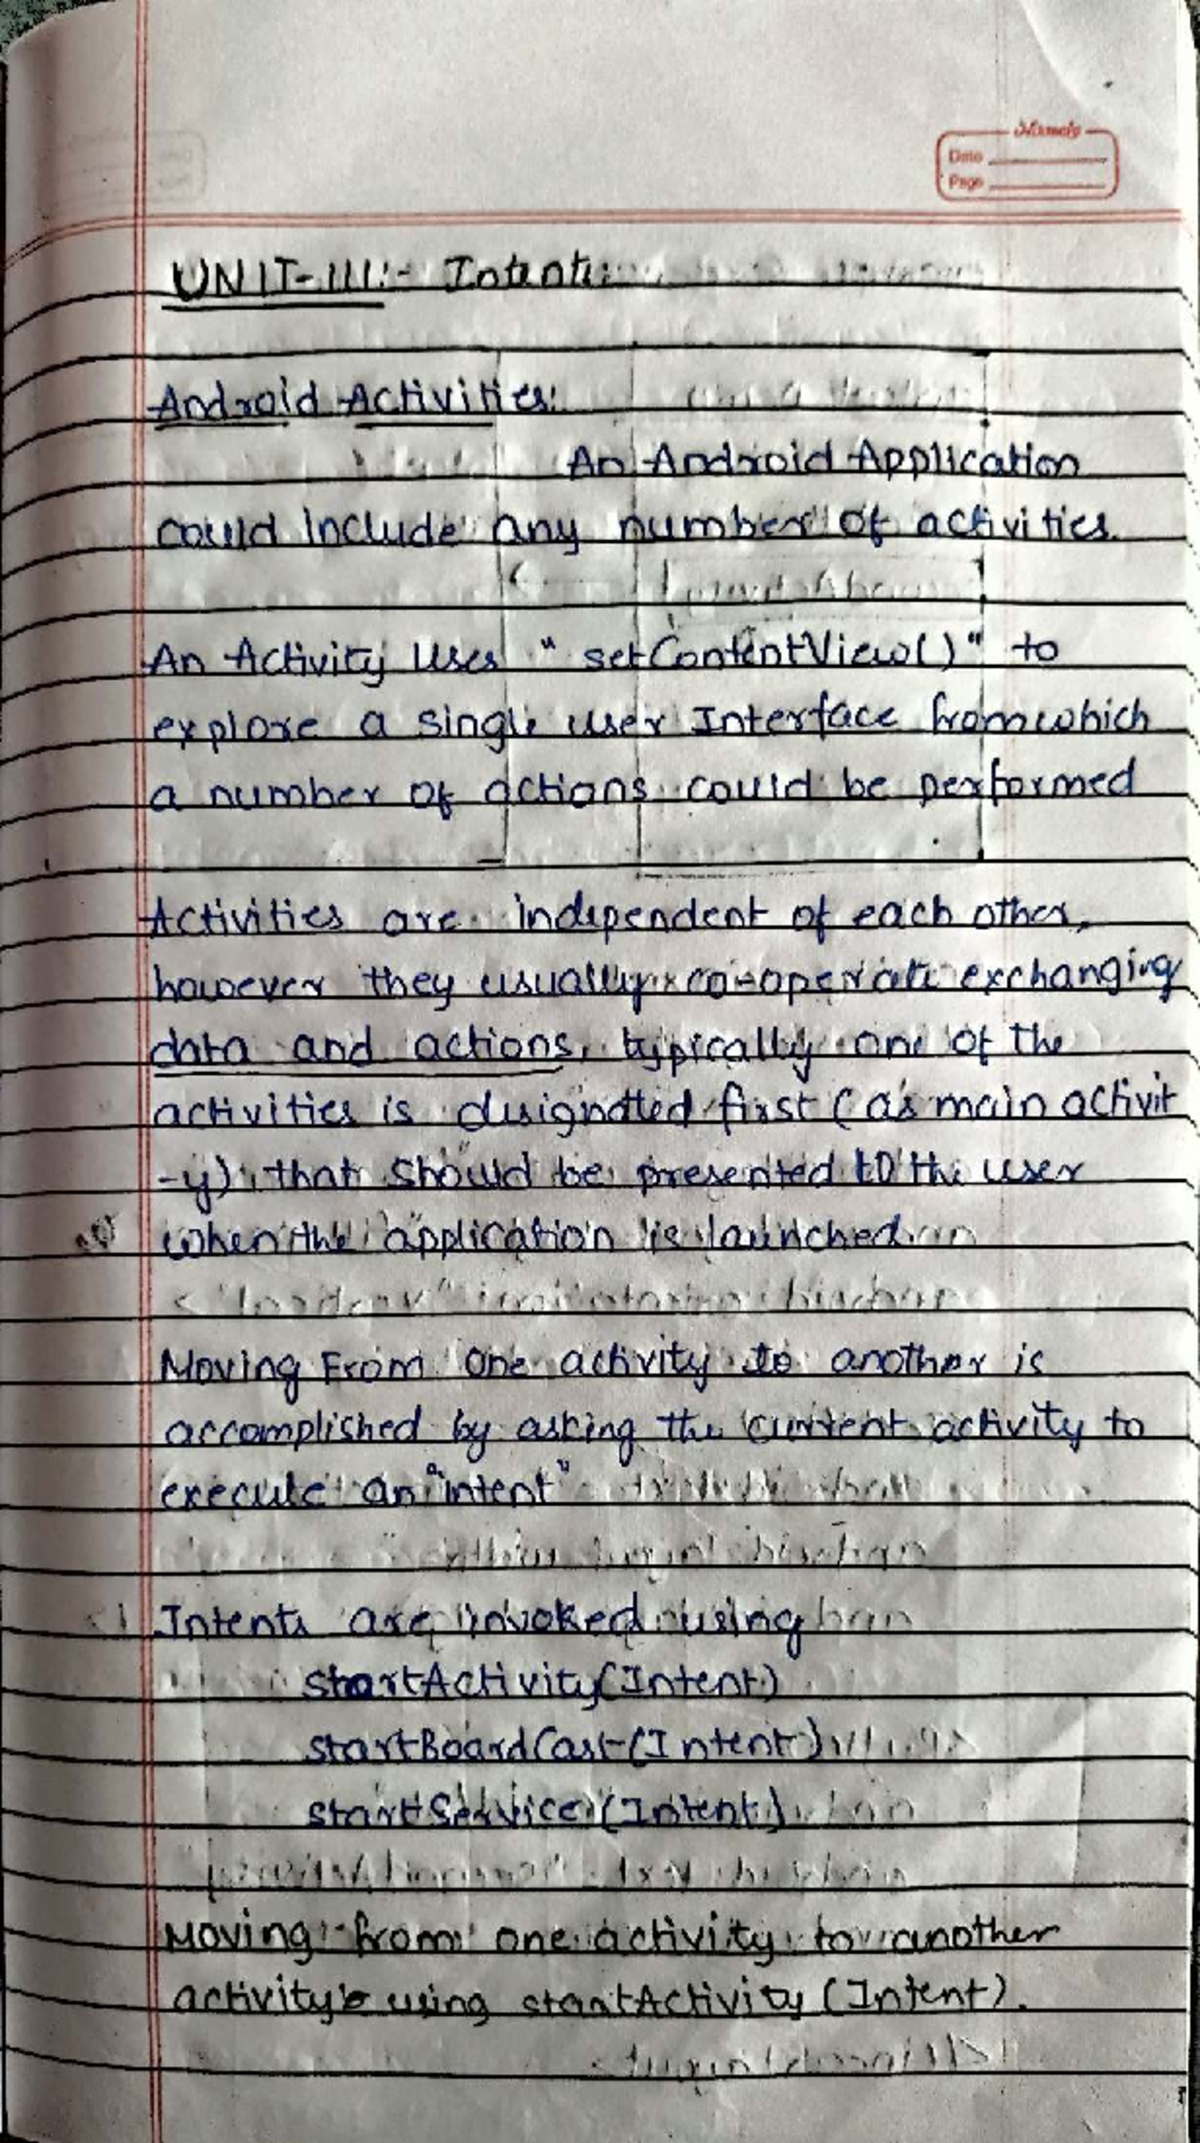 Date
Page
UNIT-III:- Intents
Android Activities:
An Android Application
could include any number of activities.
An Activity Uses "setContentView()" to
explore a single user Interface from which
a number of actions could be performed
Activities are independent of each other,
however they usually co-operate exchanging
data and actions, typically one of the
activities is designated first (as main activit
-y) that should be presented to the user
when the application is launched
Moving From one activity to another is
accomplished by asking the current activity to
execute an "intent"
Intents are invoked using
startActivity(Intent)
startBoardCast(Intent)
startService(Intent)
Moving from one activity to another
activity using startActivity (Intent).